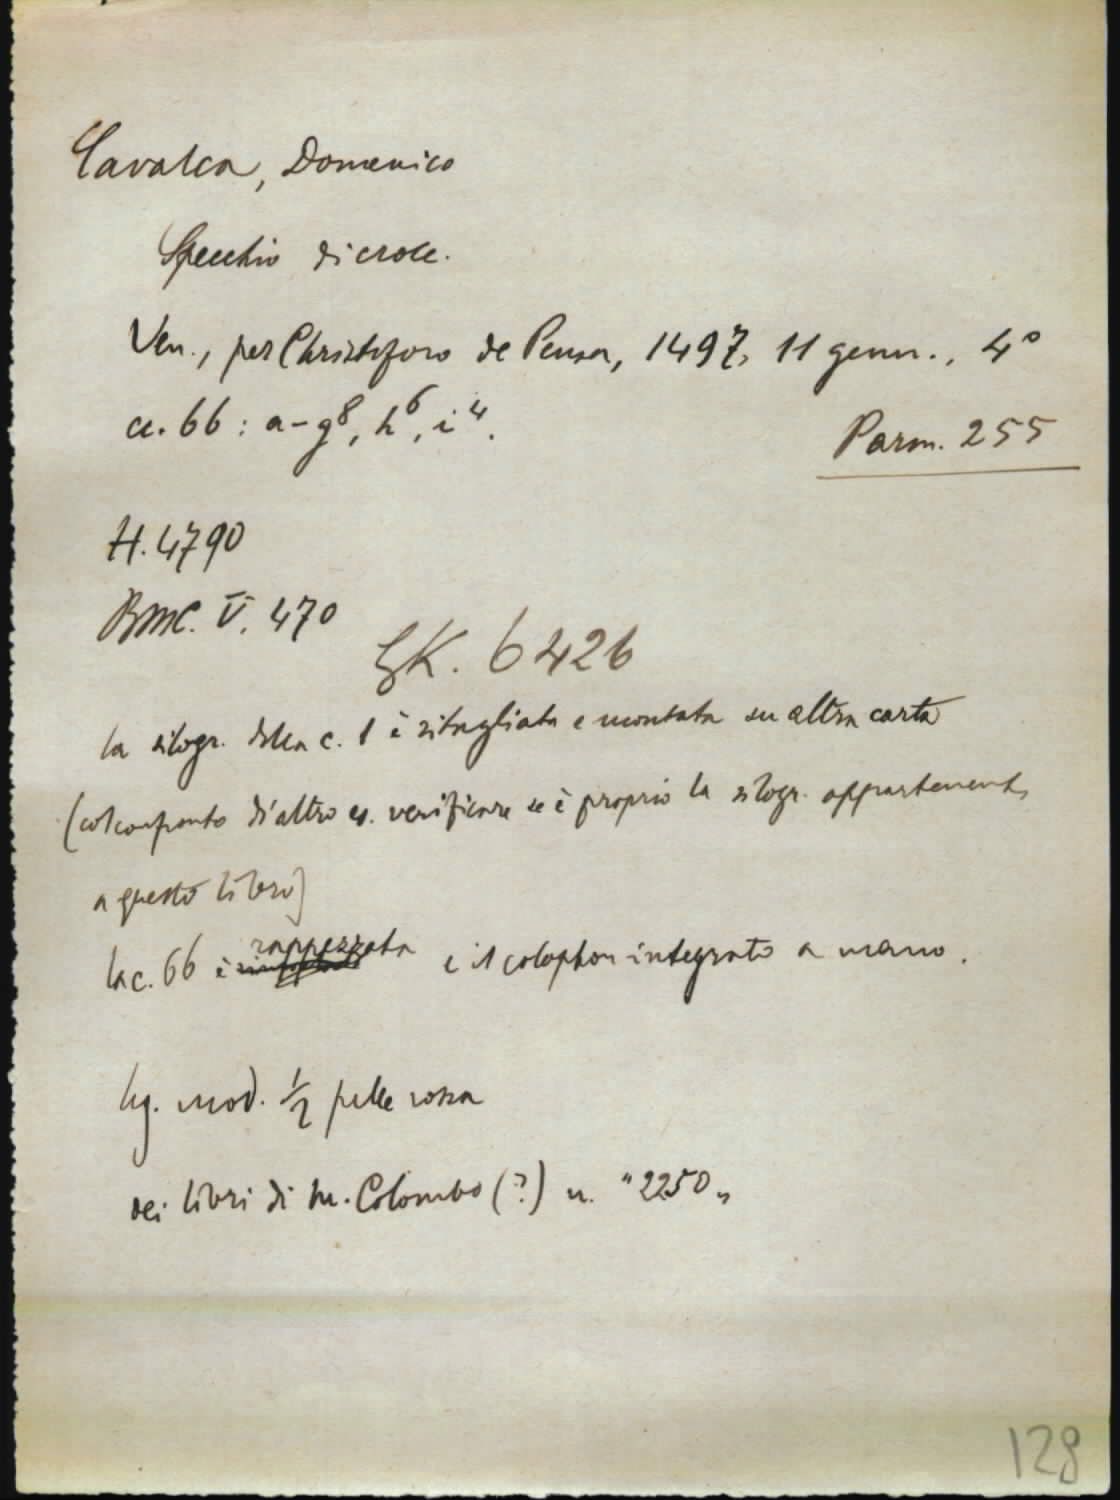 Cavalca, Domenico
Specchio di croce.
Ven., per Christoforo de Pensa, 1497, 11 genn., 4°
cc. 66 : a-g⁸, h⁶, i⁴.
Parm. 255
H. 4790
BMC. V. 470
GK. 6426
la silogr. della c. 1 è ritagliata e montata su altra carta
(col confronto di altro es. verificare se è proprio la silogr. appartenente
a questo libro)
la c. 66 è rappezzata e il colophon integrato a mano.
leg. mod. ½ pelle rossa
dei libri di M. Colombo (?) n. "2250„
128